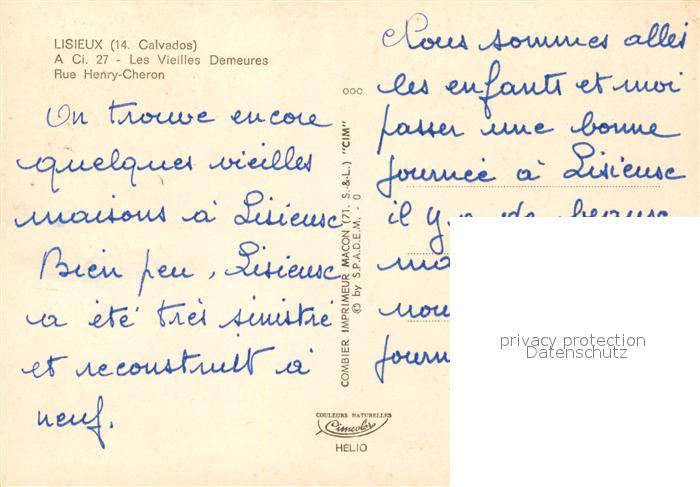 LISIEUX (14. Calvados)
A Ci. 27 - Les Vieilles Demeures
Rue Henry-Cheron
On trouve encore
quelques vieilles
maisons à Lisieux
Bien peu, Lisieux
a été très sinistré
et reconstruit à
neuf.
COMBIER IMPRIMEUR MACON (71. S.-&-L.) "CIM"
© by S.P.A.D.E.M. - 0
COULEURS NATURELLES
Cimcolor
HELIO
Nous sommes allés
les enfants et moi
passer une bonne
journée à Lisieux
il y a de beaux
ma
nou
journ
privacy protection
Datenschutz